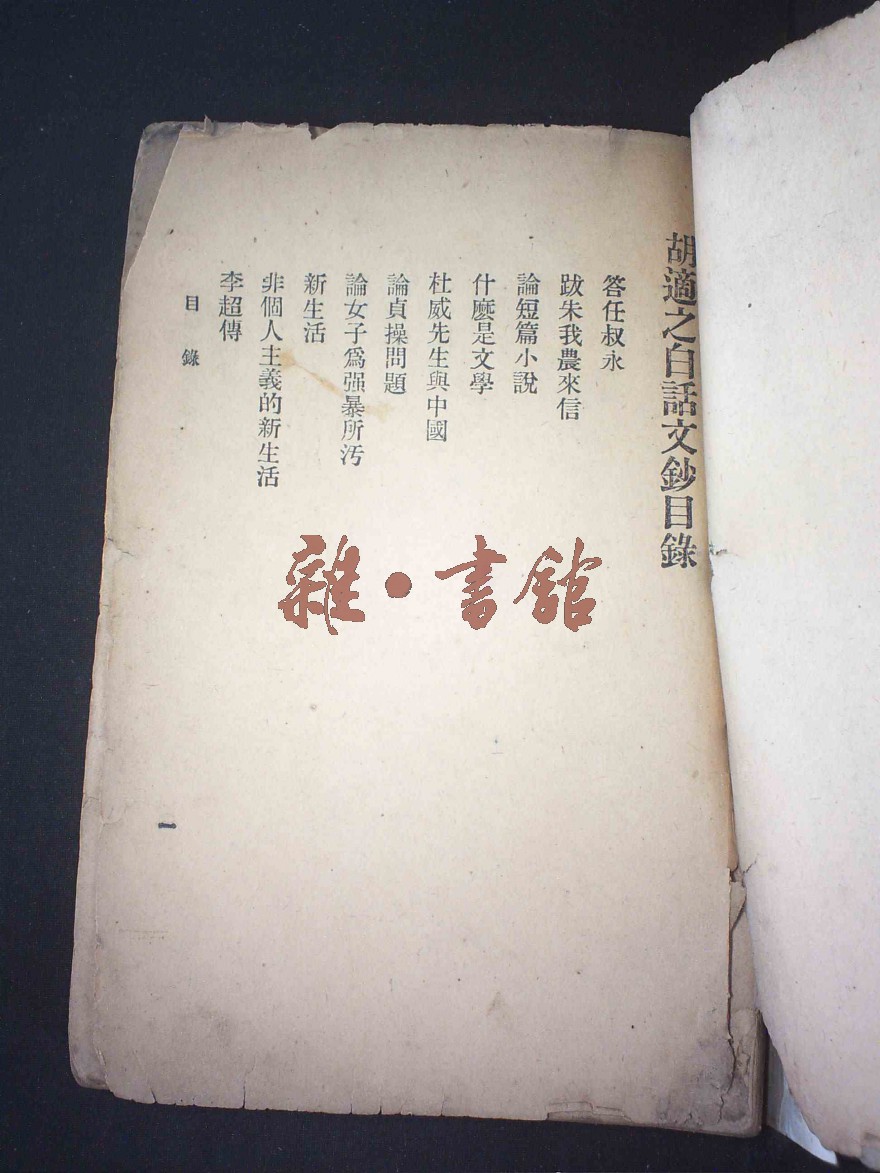 胡適之白話文鈔目錄
答任叔永
跋朱我農來信
論短篇小說
什麼是文學
杜威先生與中國
論貞操問題
論女子爲强暴所汚
新生活
非個人主義的新生活
李超傳
目錄
一
雜·書館